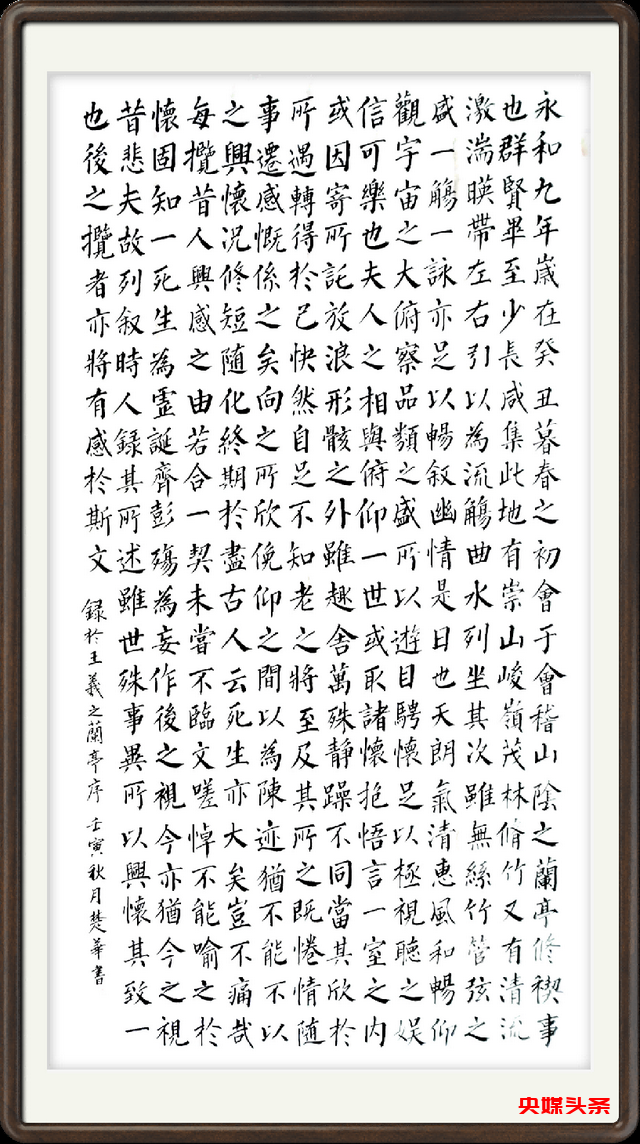 永和九年歲在癸丑暮春之初會于會稽山陰之蘭亭修禊事
也群賢畢至少長咸集此地有崇山峻嶺茂林脩竹又有清流
激湍暎帶左右引以為流觴曲水列坐其次雖無絲竹管弦之
盛一觴一詠亦足以暢叙幽情是日也天朗氣清惠風和暢仰
觀宇宙之大俯察品類之盛所以遊目騁懷足以極視聽之娛
信可樂也夫人之相與俯仰一世或取諸懷抱悟言一室之内
或因寄所託放浪形骸之外雖趣舍萬殊静躁不同當其欣於
所遇轉得於己快然自足不知老之將至及其所之既惓情隨
事遷感慨係之矣向之所欣俛仰之間以為陳迹猶不能不以
之興懷況修短隨化終期於盡古人云死生亦大矣豈不痛哉
每攬昔人興感之由若合一契未嘗不臨文嗟悼不能喻之於
懷固知一死生為靈誕齊彭殤為妄作後之視今亦猶今之視
昔悲夫故列叙時人録其所述雖世殊事異所以興懷其致一
也後之攬者亦將有感於斯文 録於王羲之蘭亭序 壬寅秋月楚華書
央媒头条